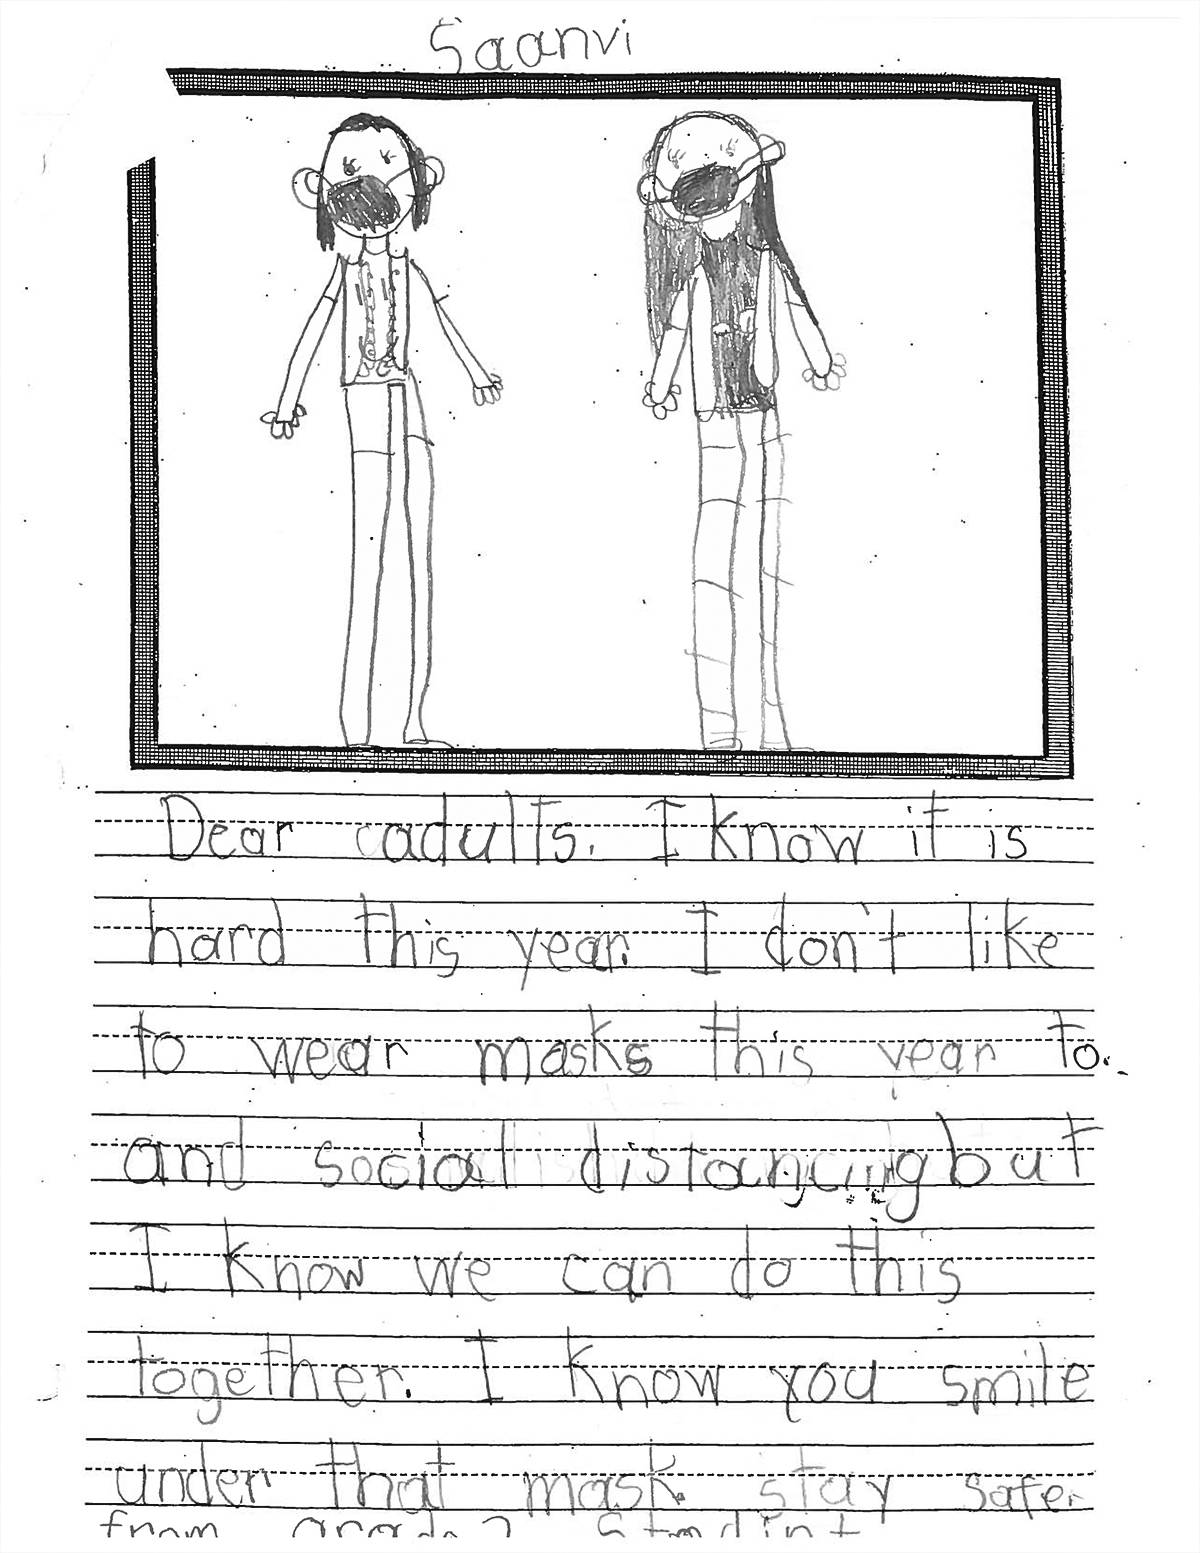 Saanvi
Dear adults. I know it is
hard this year. I don't like
to wear masks this year to.
and social distancing but
I know we can do this
together. I know you smile
under that mask. stay safe.
from grade 2